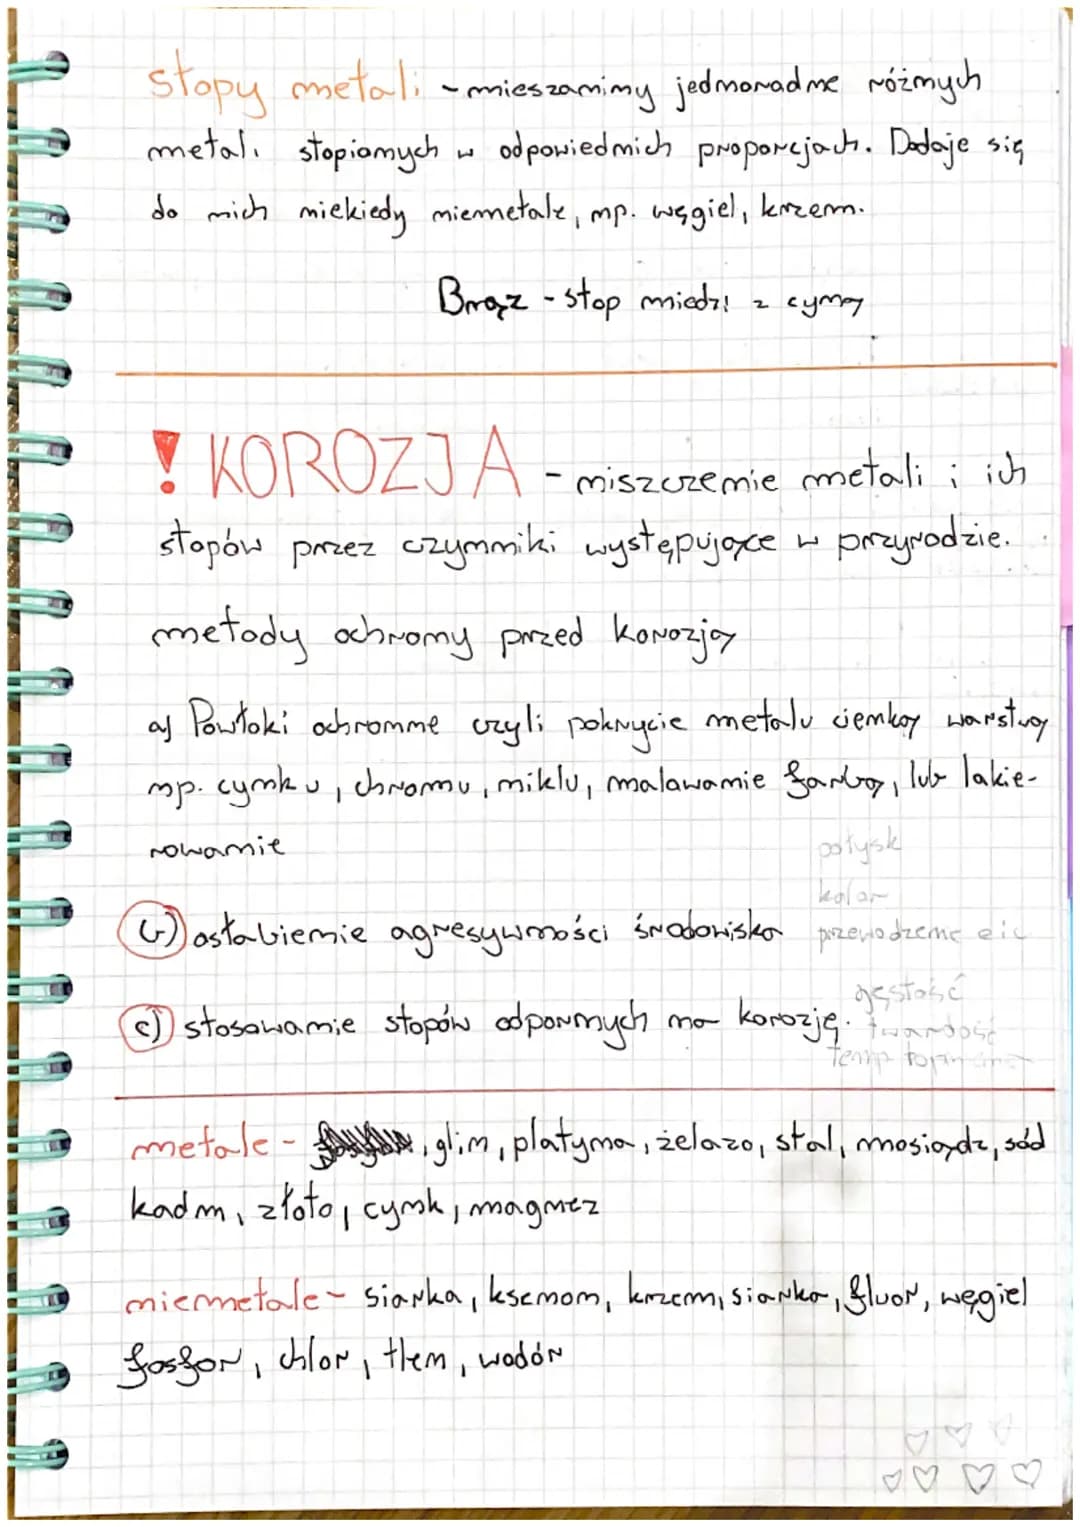 stopy metali - mieszaniny jednorodne różnych
metali stopionych w odpowiednich proporcjach. Dodaje się
do nich niekiedy niemetale, np. węgiel, krzem.
Brąz - stop miedzi z cyną
! KOROZJA - niszczenie metali i ich
stopów przez czynniki występujące w przyrodzie.
metody ochrony przed korozją
a) Powłoki ochronne czyli pokrycie metalu cienką warstwą
np. cynku, chromu, niklu, malowanie farbą, lub lakie-
rowanie
połysk
kolor
b) osłabienie agresywności środowiska przewodzenie
gęstość
c) stosowanie stopów odpornych na korozję. twardość
temp
metale - , glin, platyna, żelazo, stal, mosiądz, sód
kadm, złoto, cynk, magnez
niemetale - siarka, ksenon, krzem, siarka, fluor, węgiel
fosfor, chlor, tlen, wodór